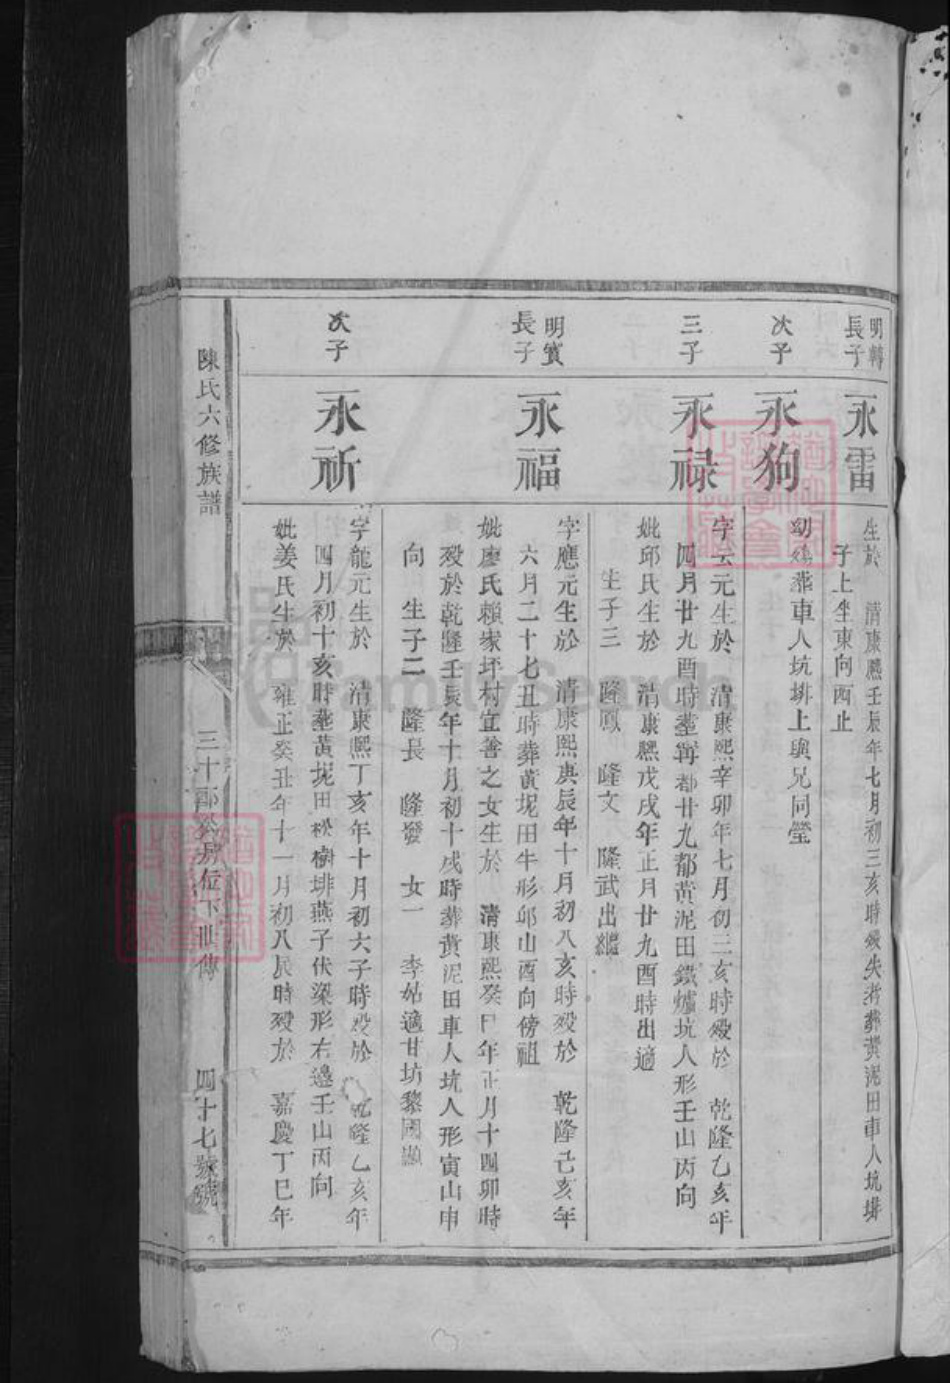 明轉
長子
永雷
生於 清康熙壬辰年七月初三亥時歿失考葬黃泥田車人坑排
子上坐東向西止
次子
永狗
幼殤葬車人坑排上與兄同塋
三子
永祿
字云元生於 清康熙辛卯年七月初三亥時歿於 乾隆乙亥年
四月廿九酉時葬寗都廿九都黃泥田鐵爐坑人形壬山丙向
妣邱氏生於 清康熙戊戌年正月廿九酉時出適
生子三 隆鳳 隆文 隆武出繼
明賓
長子
永福
字應元生於 清康熙庚辰年十月初八亥時歿於 乾隆己亥年
六月二十七丑時葬黃坭田牛形卯山酉向傍祖
妣廖氏賴家坪村宜善之女生於 清康熙癸巳年正月十四卯時
歿於乾隆壬辰年十月初十戌時葬黃泥田車人坑人形寅山申
向 生子二 隆長 隆發 女一 李姑適甘坊黎國
次子
永祈
字龍元生於 清康熙丁亥年十月初六子時歿於 乾隆乙亥年
四月初十亥時葬黃坭田松樹排燕子伏梁形右邊壬山丙向
妣姜氏生於 雍正癸丑年十一月初八辰時歿於 嘉慶丁巳年
陳氏六修族譜
三十郎公房位下世傳
四十七號
FamilySearch